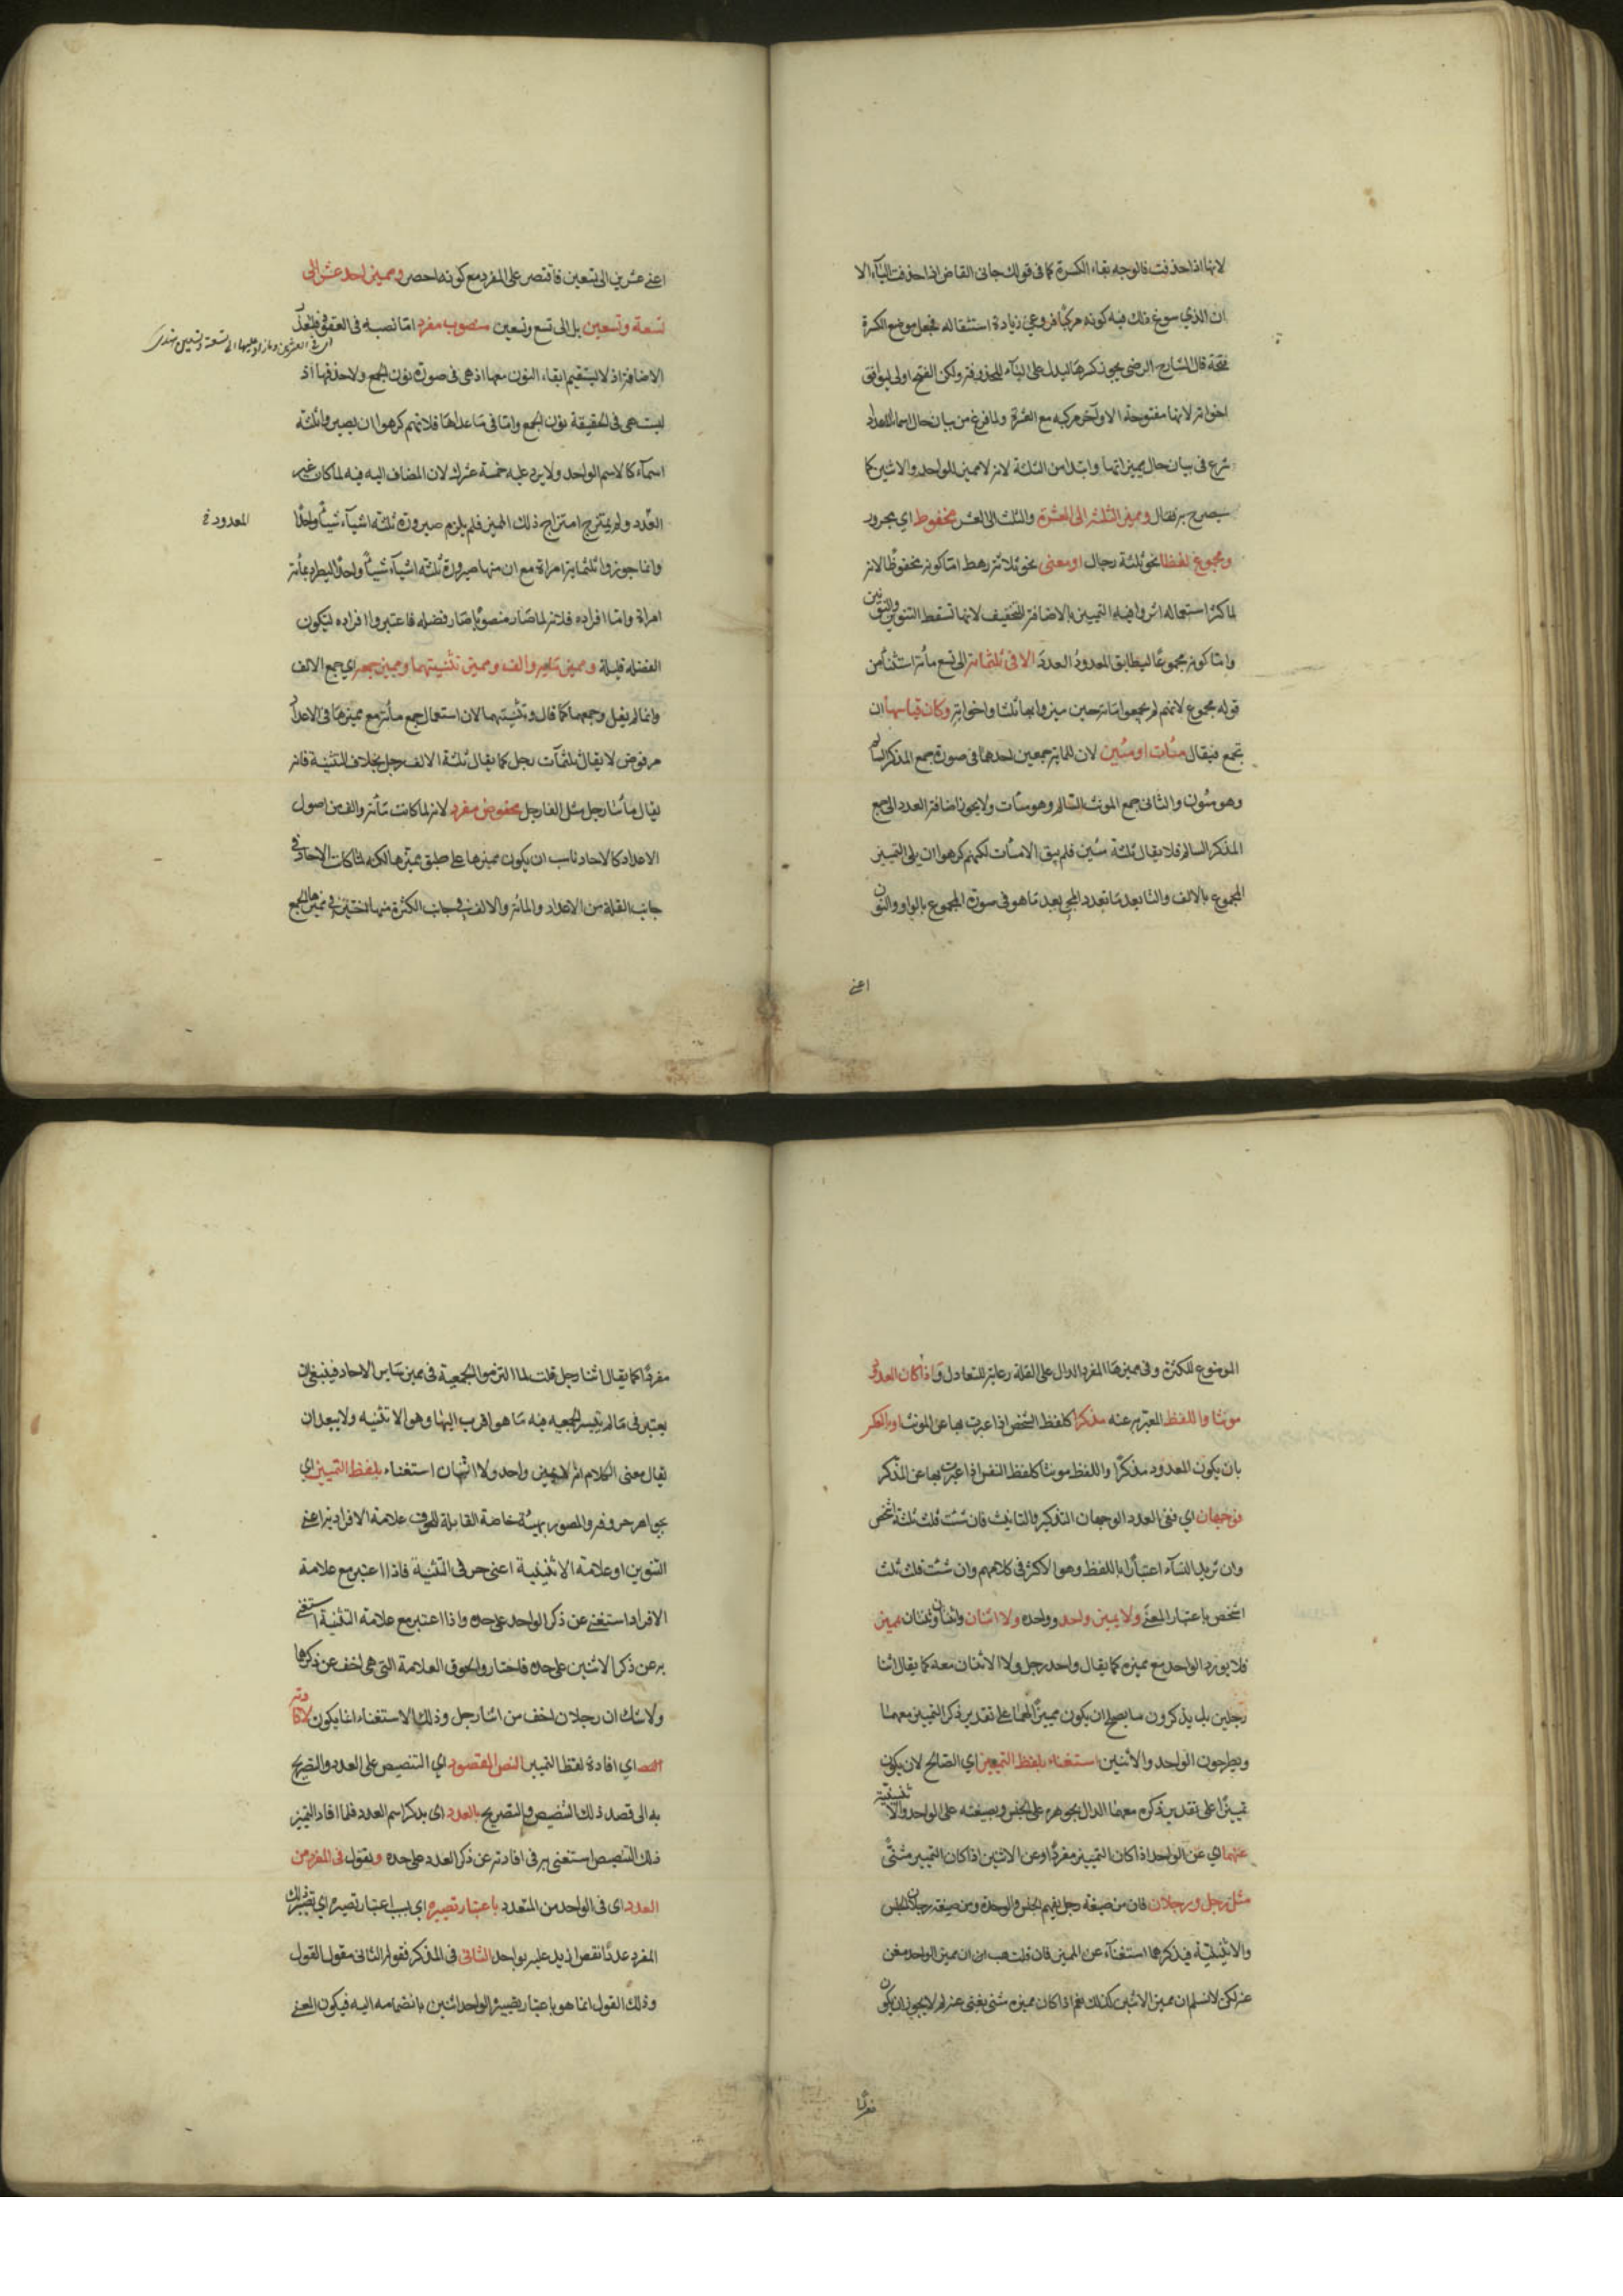 لانها اذا حذفت فالوجه بقاء الكسرة كما في قولك جاني القاض اذا حذفت الياء الا
ان الذي سوغ ذلك فيه كونه مركبا فروعي زيادة استثقاله فجعل موضع الكسرة
فتحة قال الشارح الرضي يجوز كسرها ليدل على الياء المحذوفة ولكن الفتح اولى ليوافق
اخواته لانها مفتوحة الاواخر مركبة مع العشرة ولما فرغ من بيان حال اسماء العدد
شرع في بيان حال مميزاتها وابتدا من الثلثة لانه لا مميز للواحد والاثنين كما
سيصرح به فقال ومميز الثلثة الى العشرة والثلث الى العشر مخفوض اي مجرور
ومجموع لفظا نحو ثلثة رجال او معنى نحو ثلاثة رهط اما كونه مخفوضا لانه
لما كثر استعماله اثروا فيه التمييز بالاضافة للتخفيف لانها تسقط التنوين والنونين
واما كونه مجموعا ليطابق المعدود العدد الا في ثلثمائة الى تسع مائة استثناء من
قوله مجموع لانهم لم يجمعوا مائة حين ميزوا بها ثلثا واخواته وكان قياسها ان
تجمع فيقال مئات او مئين لان للماية جمعين احدهما في صورة جمع المذكر السالم
وهو مئون والثاني جمع المونث السالم وهو مئات ولا يجوز اضافة العدد الى جمع
المذكر السالم فلا يقال ثلثة مئين فلم يبق الا مئات لكنهم كرهوا ان يلي التمييز
المجموع بالالف والتا بعد ما تعود المجي بعد ما هو في صورة المجموع بالواو والنون
اعني
اعني عشرين الى تسعين فاقتصر على المفرد مع كونه اخصر ومميز احد عشر الى
تسعة وتسعين بل الى تسع وتسعين منصوب مفرد اما نصبه في العقود فلتعذر
اي في العشرين وما زاد عليها الى تسعة وتسعين هندي
الاضافة اذ لا يستقيم ابقاء النون معها اذ هي في صورة نون الجمع ولا حذفها اذ
ليست هي في الحقيقة نون الجمع واما في ما عداها فلانهم كرهوا ان يصيروا ثلثة
اسماء كالاسم الواحد ولا يرد عليه خمسة عشرك لان المضاف اليه فيه لما كان غير
العدد ولم يمتزج امتزاج ذلك المميز فلم يلزم صيرورة ثلثة اشياء شيئا واحدا
المعدود خ
وانما جوزوا ثلثماية امراة مع ان فيها صيرورة ثلثة اشياء شيئا واحدا ليطرد بمائة
امراة واما افراده فلانه لما صار منصوبا صار فضلة فاعتبروا افراده ليكون
الفضلة قليلة ومميز مائة والف ومميز تثنيتهما ومميز جمعه اي جمع الالف
وانما لم يقل وجمعهما كما قال وتثنيتهما لان استعمال جمع مائة مع مميزها في الاعداد
مرفوض لا يقال ثلثمآت رجل كما يقال ثلثة الالف رجل بخلاف التثنية فانه
يقال مأتا رجل مثل الفا رجل مخفوض مفرد لانه لما كانت مائة والف من اصول
الاعداد كالاحاد ناسب ان يكون مميزها على طبق مميزها لكنه لما كانت الاحاد في
جانب القلة من الاعداد والمائة والالف في جانب الكثرة منها اختير في مميزها الجمع
الموضوع للكثرة وفي مميزها المفرد الدال على القلة رعاية للتعادل واذا كان المعدود
مونثا واللفظ المعبر به عنه مذكرا كلفظ الشخص اذا عبرت بها عن المونث او بالعكس
بان يكون المعدود مذكرا واللفظ مونثا كلفظ النفس اذا عبرت بها عن المذكر
فوجهان اي ففي العدد الوجهان التذكير والتانيث فان شئت قلت ثلثة اشخص
وان تريد النساء اعتبارا باللفظ وهو الاكثر في كلامهم وان شئت قلت ثلث
اشخص باعتبار المعني ولا يميز واحد وواحدة ولا اثنان واثنتان وثنتان بمميز
فلا يورد الواحد مع مميزه كما يقال واحد رجل ولا الاثنان معه كما يقال اثنا
رجلين بل يذكرون ما يصح ان يكون مميزا لهما على تقدير ذكر التمييز معهما
ويطرحون الواحد والاثنين استغناء بلفظ التمييز اي الصالح لان يكون
تمييزا على تقدير ذكره معهما الدال بجوهره على الجنس وبصيغته على الواحد والاثنينية
عنهما اي عن الواحد اذا كان التمييز مفردا وعن الاثنين اذا كان التمييز مثنى
مثل رجل ورجلان فان من صيغة رجل يفهم الجنس والوحدة ومن صيغة رجلان الجنس
والاثنينية فيذكرها استغناء عن المميز فان قلت هب ان مميز الواحد مغن
عنه لكن لا نسلم ان مميز الاثنين كذلك نعم اذا كان مميزه مثنى يغني عنه لم لا يجوز ان يكون
مفردا
مفردا كما يقال اثنا رجل قلت لما التزموا الجمعية في مميز ساير الاحاد فينبغي ان
يعتبر في ما لم يتيسر الجمعية فيه ما هو اقرب اليها وهو الاتثنيه ولا يبعد ان
يقال معنى الكلام انه لا يميز واحد ولا اثنان استغناء بلفظ التمييز اي
بجواهر حروفه والمصور بهيئة خاصة القابلة للحوق علامة الافراد به اعني
التنوين او علامة الاثنينية اعني حرفي التثنية فاذا اعتبر مع علامة
الافراد استغني عن ذكر الواحد على حده واذا اعتبر مع علامة التثنية استغني
به عن ذكر الاثنين على حده فاختاروا لحوق العلامة التي هي اخف عن ذكرها
ولا شك ان رجلان اخف من اثنا رجل وذلك الاستغناء انما يكون لافادته
النص اي افادة لفظ التمييز النص المقصود اي التنصيص على العدد والتصريح
به الى قصد ذلك التنصيص والتصريح بالعدد اي بذكر اسم العدد فلما افاد التميز
ذلك التنصيص استغني به في افادته عن ذكر العدد على حده ويقول في المفرد من
العدد اي في الواحد من المتعدد باعتبار تصييره اي بسبب اعتبار تصييره اي تصيير ذلك
المفرد عددا انقص ازيد عليه بواحد الثاني في المذكر فقوله الثاني مقول القول
وذلك القول انما هو باعتبار تصييره الواحد اثنين بانضمامه اليه فيكون المعني